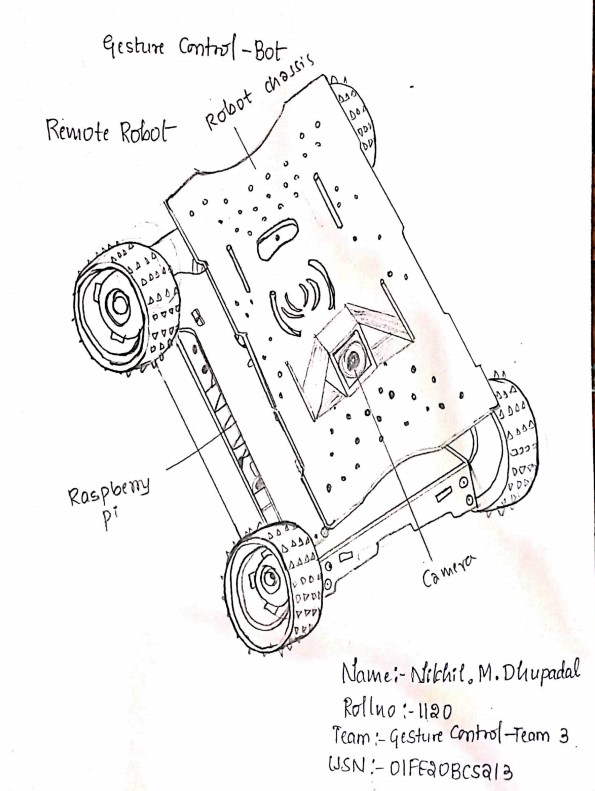 Gesture Control-Bot
Robot chassis
Remote Robot
Raspberry
pi
Camera
Name:- Nikhil. M. Dhupadal
Rollno :- 1120
Team:- Gesture Control-Team 3
USN:- 01FE20BCS213